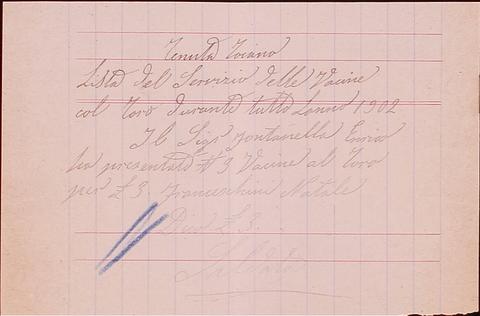 Tenuta Toiano
Lista del Servizio delle Vacine
col Toro durante tutto Lanno 1902
Il Sigr Fontanella Enrico
ha presentato N 3 Vacine al Toro
per £ 3. Franceschini Natale
Dico £ 3.
Saldato